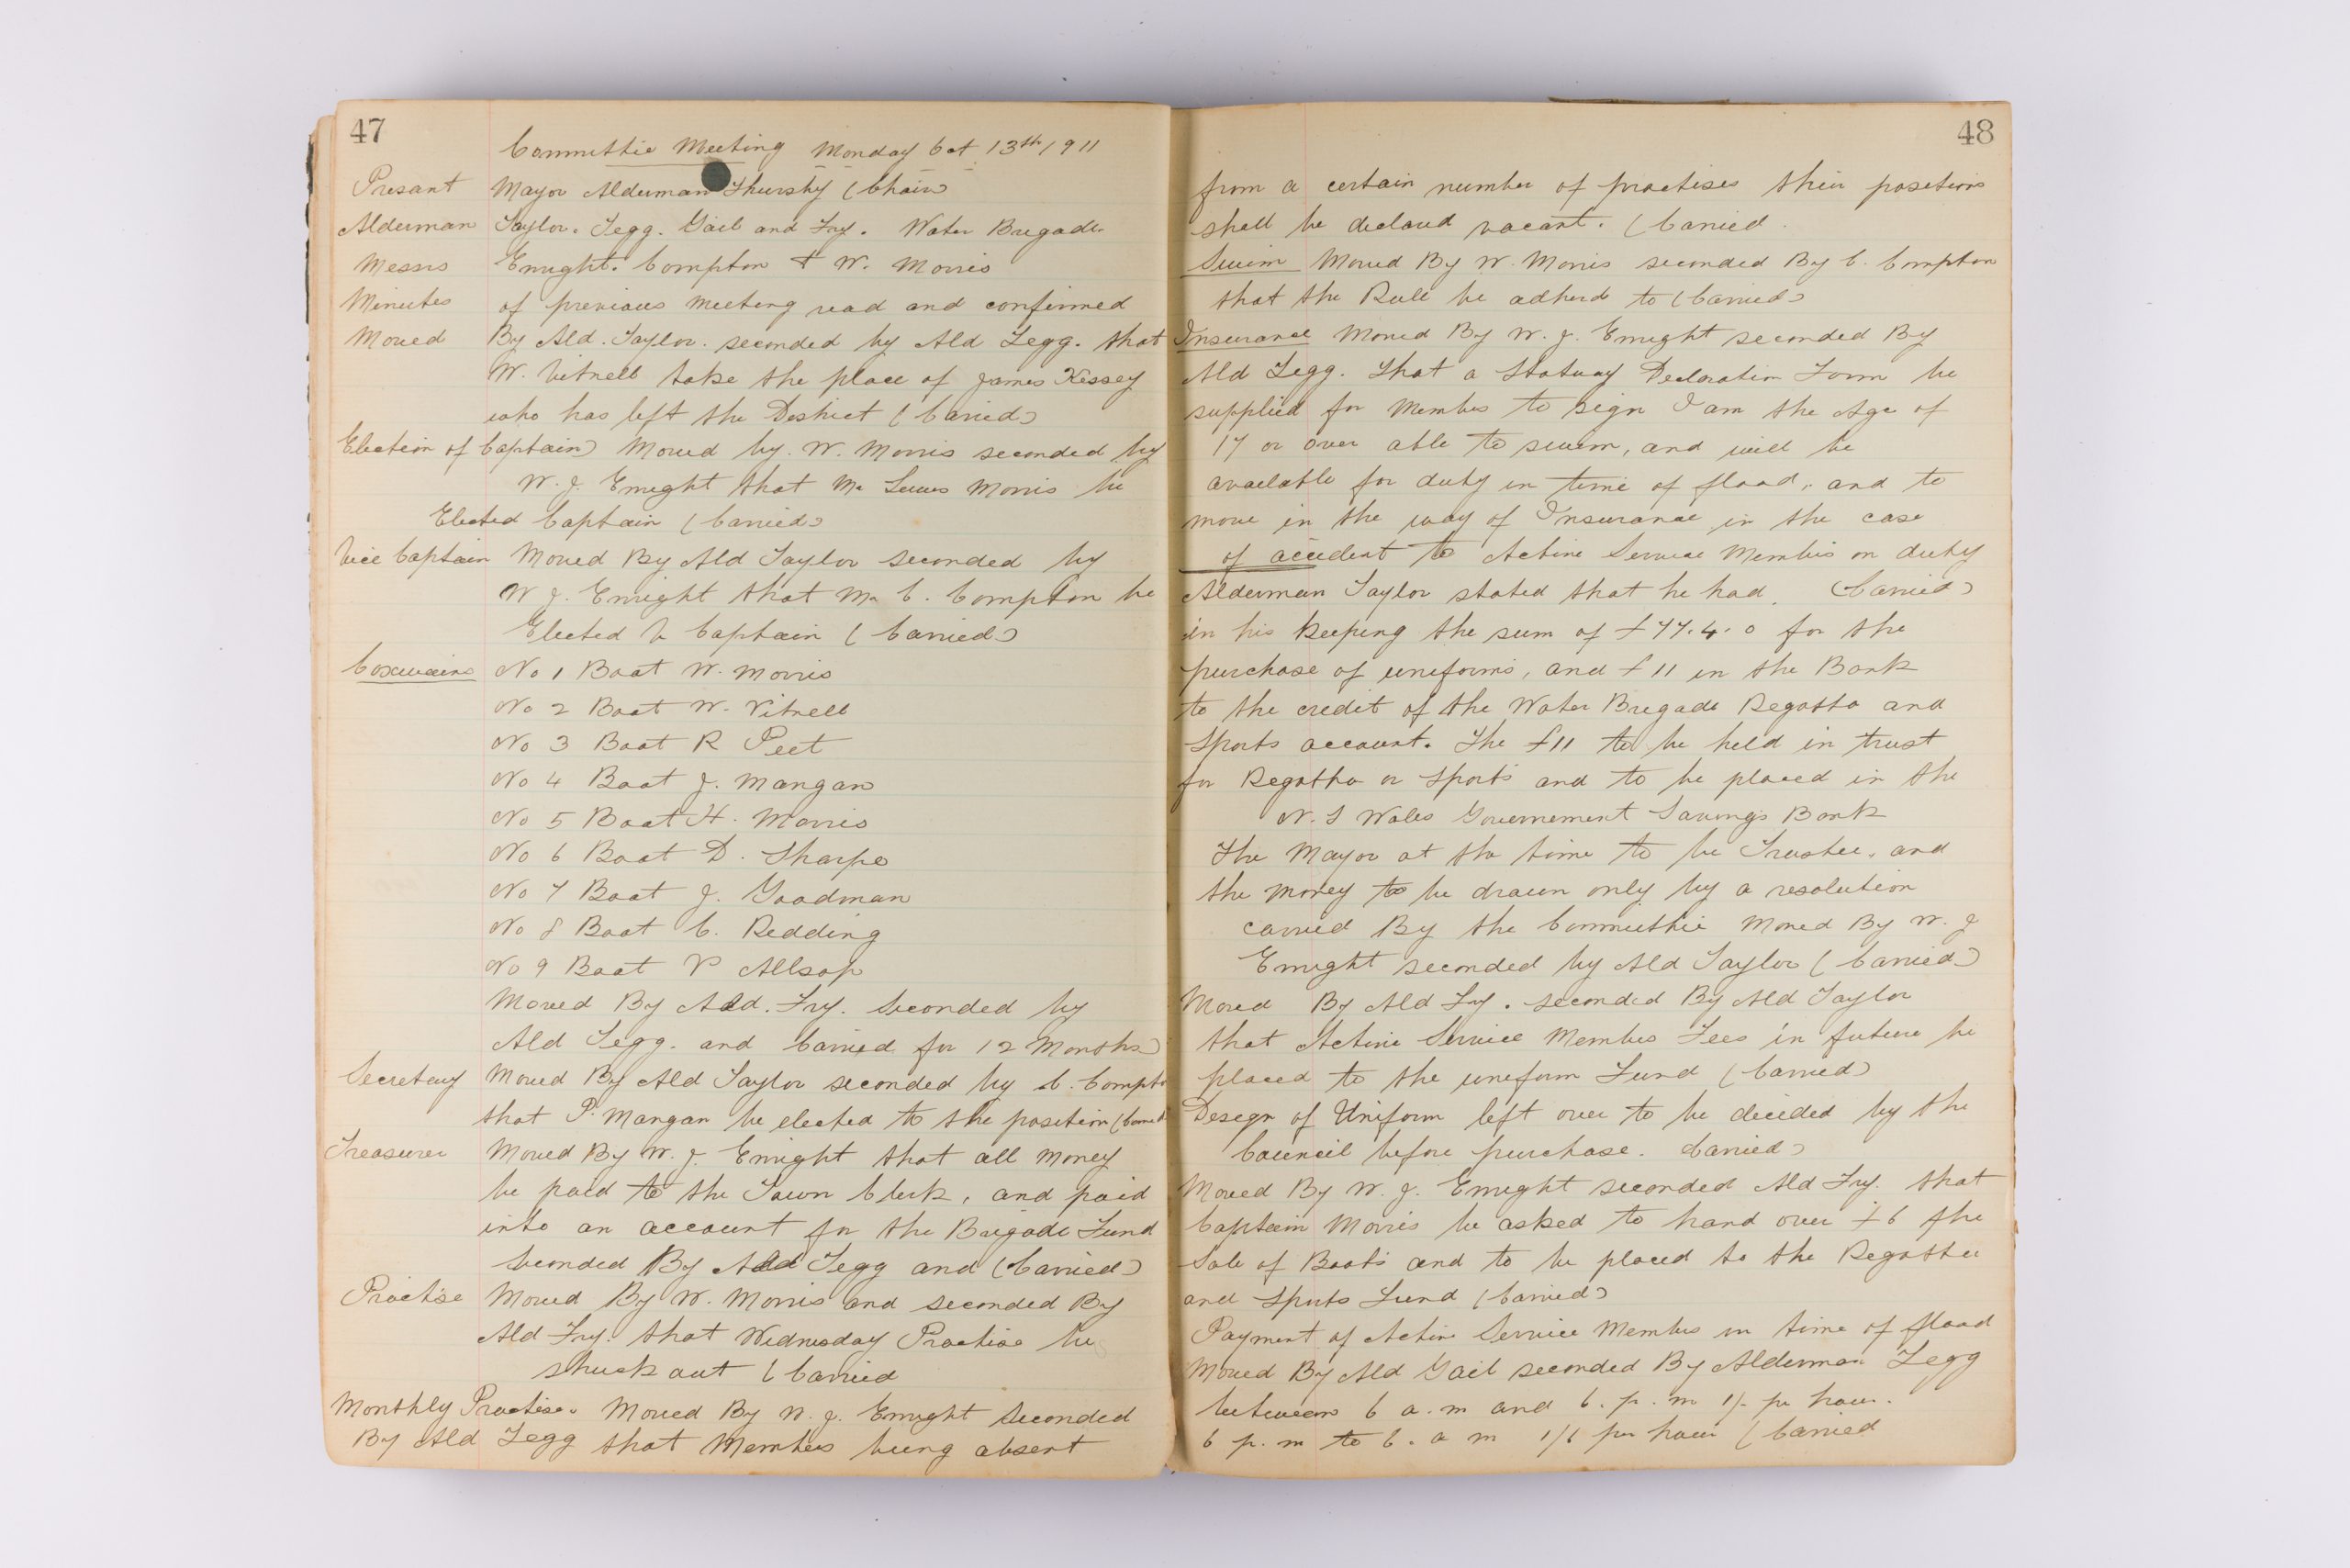 47
Committie Meeting Monday Oct 13th 1911
Presant Mayor Alderman Thursby (Chair)
Alderman Taylor. Tegg. Gail and Fry. Water Brigade
Messrs Enright. Compton & W. Morris
Minutes of previous meeting read and confirmed
Moved By Ald. Taylor. seconded by Ald Tegg. that
W. Vitnell take the place of James Kessey
who has left the District (Carried)
Election of Captain) Moved by. W. Morris seconded by
W. J. Enright that Mr Lewes Morris be
Elected Captain (Carried)
Vice Captain Moved By Ald Taylor seconded by
W J. Enright that Mr C. Compton be
Elected V Captain (Carried)
Coxwains No 1 Boat W. Morris
No 2 Boat W. Vitnell
No 3 Boat R Peet
No 4 Boat J. Mangan
No 5 Boat H. Morris
No 6 Boat D. Sharpe
No 7 Boat J. Goodman
No 8 Boat C. Redding
No 9 Boat P Allsop
Moved By Ald. Fry. Seconded by
Ald Tegg. and Carried for 12 Months)
Secretary Moved By Ald Taylor seconded by C. Compto
that P. Mangan be elected to the position (Carried
Treasurer Moved By W. J. Enright that all money
be paid to the Town Clerk, and paid
into an account for the Brigade Fund
Seconded By Ald Tegg and (Carried)
Practise Moved By W. Morris and seconded By
Ald Fry. that Wednesday Practise be
struck out (Carried
Monthly Practise. Moved By W. J. Enright Seconded
By Ald Tegg that Members being absent
48
from a certain number of practises their positions
shall be declared vacant. (Carried.
Swim Moved By W. Morris seconded By C. Compton
that the Rule be adherd to (Carried)
Insurance Moved By W. J. Enright seconded By
Ald Tegg. that a Statuary Declaration Form be
supplied for Members to sign I am the Age of
17 or over able to swim, and will be
available for duty in time of flood, and to
move in the way of Insurance in the case
of accident to Active Service Members on duty
Alderman Taylor stated that he had. (Carried)
in his keeping the sum of £77.4.0 for the
purchase of uniforms, and £11 in the Bank
to the credit of the Water Brigade Regatta and
Sports account. The £11 to be held in trust
for Regatta or Sports and to be placed in the
N. S Wales Government Savings Bank
The Mayor at the time to be Trustee, and
the money to be drawn only by a resolution
carried By the Committie Moved By W. J
Enright seconded by Ald Taylor (Carried)
Moved By Ald Fry. seconded By Ald Taylor
that Active Service Members Fees in future be
placed to the uniform Fund (Carried)
Design of Uniform left over to be decided by the
Council before purchase. Carried)
Moved By W. J. Enright seconded Ald Fry. that
Captain Morris be asked to hand over £6 fhe
Sale of Boats and to be placed to the Regatta
and Sports Fund (Carried)
Payment of Active Service Members in time of flood
Moved By Ald Gail seconded By Alderman Tegg
between 6 a.m and 6. p. m 1/- per hour.
6 p. m to 6. a m 1/6 per hour (Carried